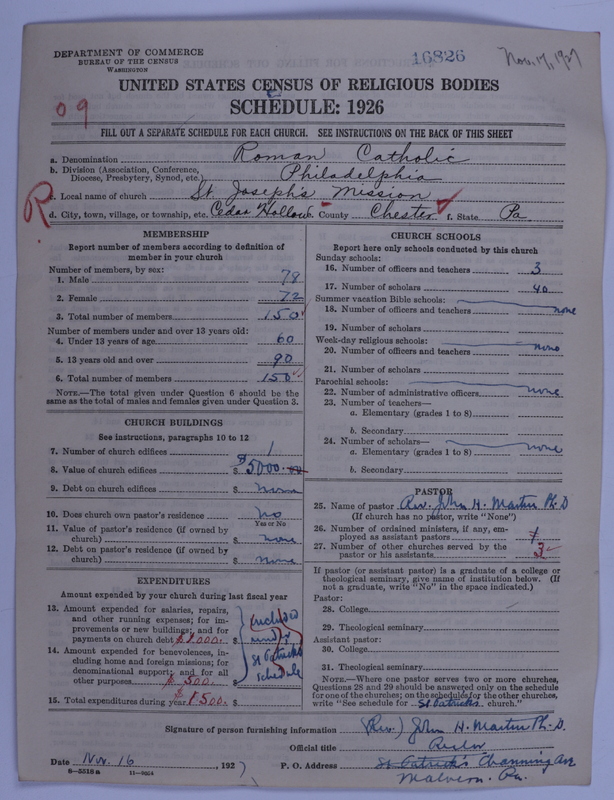 DEPARTMENT OF COMMERCE
BUREAU OF THE CENSUS
WASHINGTON
16826
Nov. 17, 1927
UNITED STATES CENSUS OF RELIGIOUS BODIES
SCHEDULE: 1926
09
FILL OUT A SEPARATE SCHEDULE FOR EACH CHURCH. SEE INSTRUCTIONS ON THE BACK OF THIS SHEET
a. Denomination Roman Catholic
b. Division (Association, Conference, Diocese, Presbytery, Synod, etc.) Philadelphia
R.
c. Local name of church St Joseph's Mission
d. City, town, village, or township, etc. Cedar Hollow e. County Chester f. State Pa
MEMBERSHIP
Report number of members according to definition of
member in your church
Number of members, by sex:
1. Male 78
2. Female 72
3. Total number of members 150
Number of members under and over 13 years old:
4. Under 13 years of age 60
5. 13 years old and over 90
6. Total number of members 150
NOTE.—The total given under Question 6 should be
same as the total of males and females given under Question 3.
CHURCH BUILDINGS
See instructions, paragraphs 10 to 12
7. Number of church edifices 1
8. Value of church edifices $ $5000.00
9. Debt on church edifices $ None
10. Does church own pastor's residence? No
Yes or No
11. Value of pastor's residence (if owned by
church) $ None
12. Debt on pastor's residence (if owned by
church) $ None
EXPENDITURES
Amount expended by your church during last fiscal year
13. Amount expended for salaries, repairs,
and other running expenses; for im-
provements or new buildings; and for
payments on church debt $1000. $
14. Amount expended for benevolences, in-
cluding home and foreign missions; for
denominational support; and for all
other purposes $500. $
included
under
St Patricks
schedule
15. Total expenditures during year $1500. $
CHURCH SCHOOLS
Report here only schools conducted by this church
Sunday schools:
16. Number of officers and teachers 3
17. Number of scholars 40
Summer vacation Bible schools:
18. Number of officers and teachers none
19. Number of scholars
Week-day religious schools:
20. Number of officers and teachers none
21. Number of scholars
Parochial schools:
22. Number of administrative officers none
23. Number of teachers—
a. Elementary (grades 1 to 8)
b. Secondary
24. Number of scholars—
a. Elementary (grades 1 to 8) none
b. Secondary
PASTOR
25. Name of pastor Rev. John H. Martin Ph. D
(If church has no pastor, write "None")
26. Number of ordained ministers, if any, em-
ployed as assistant pastors 1
27. Number of other churches served by the
pastor or his assistants 3
If pastor (or assistant pastor) is a graduate of a college or
theological seminary, give name of institution below. (If
not a graduate, write "No" in the space indicated.)
Pastor:
28. College
29. Theological seminary
Assistant pastor:
30. College
31. Theological seminary
NOTE.—Where one pastor serves two or more churches,
Questions 28 and 29 should be answered only on the schedule
for one of the churches; on the schedules for the other churches,
write "See schedule for St Patricks church."
Signature of person furnishing information (Rev.) John H. Martin Ph. D.
Official title Rector
Date Nov. 16, 1927
P. O. Address St Patrick's Channing Ave
Malvern. Pa.
6—5518a 11—9664